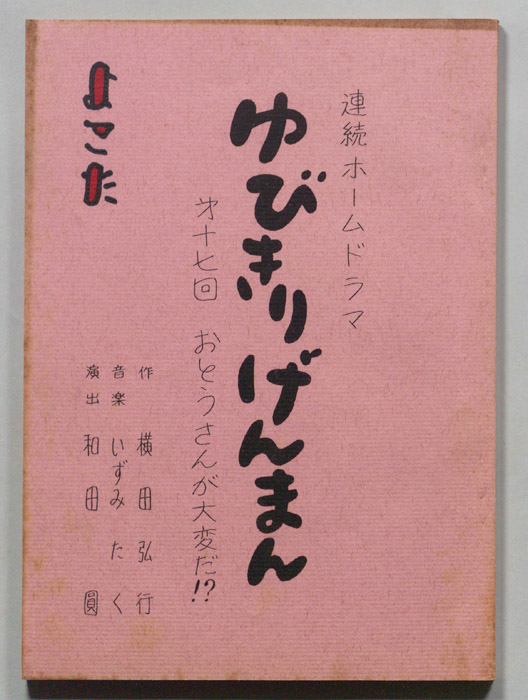 連続ホームドラマ
ゆびきりげんまん
第十七回 おとうさんが大変だ!?
作 横田弘行
音楽 いずみたく
演出 和田 圓
よこた